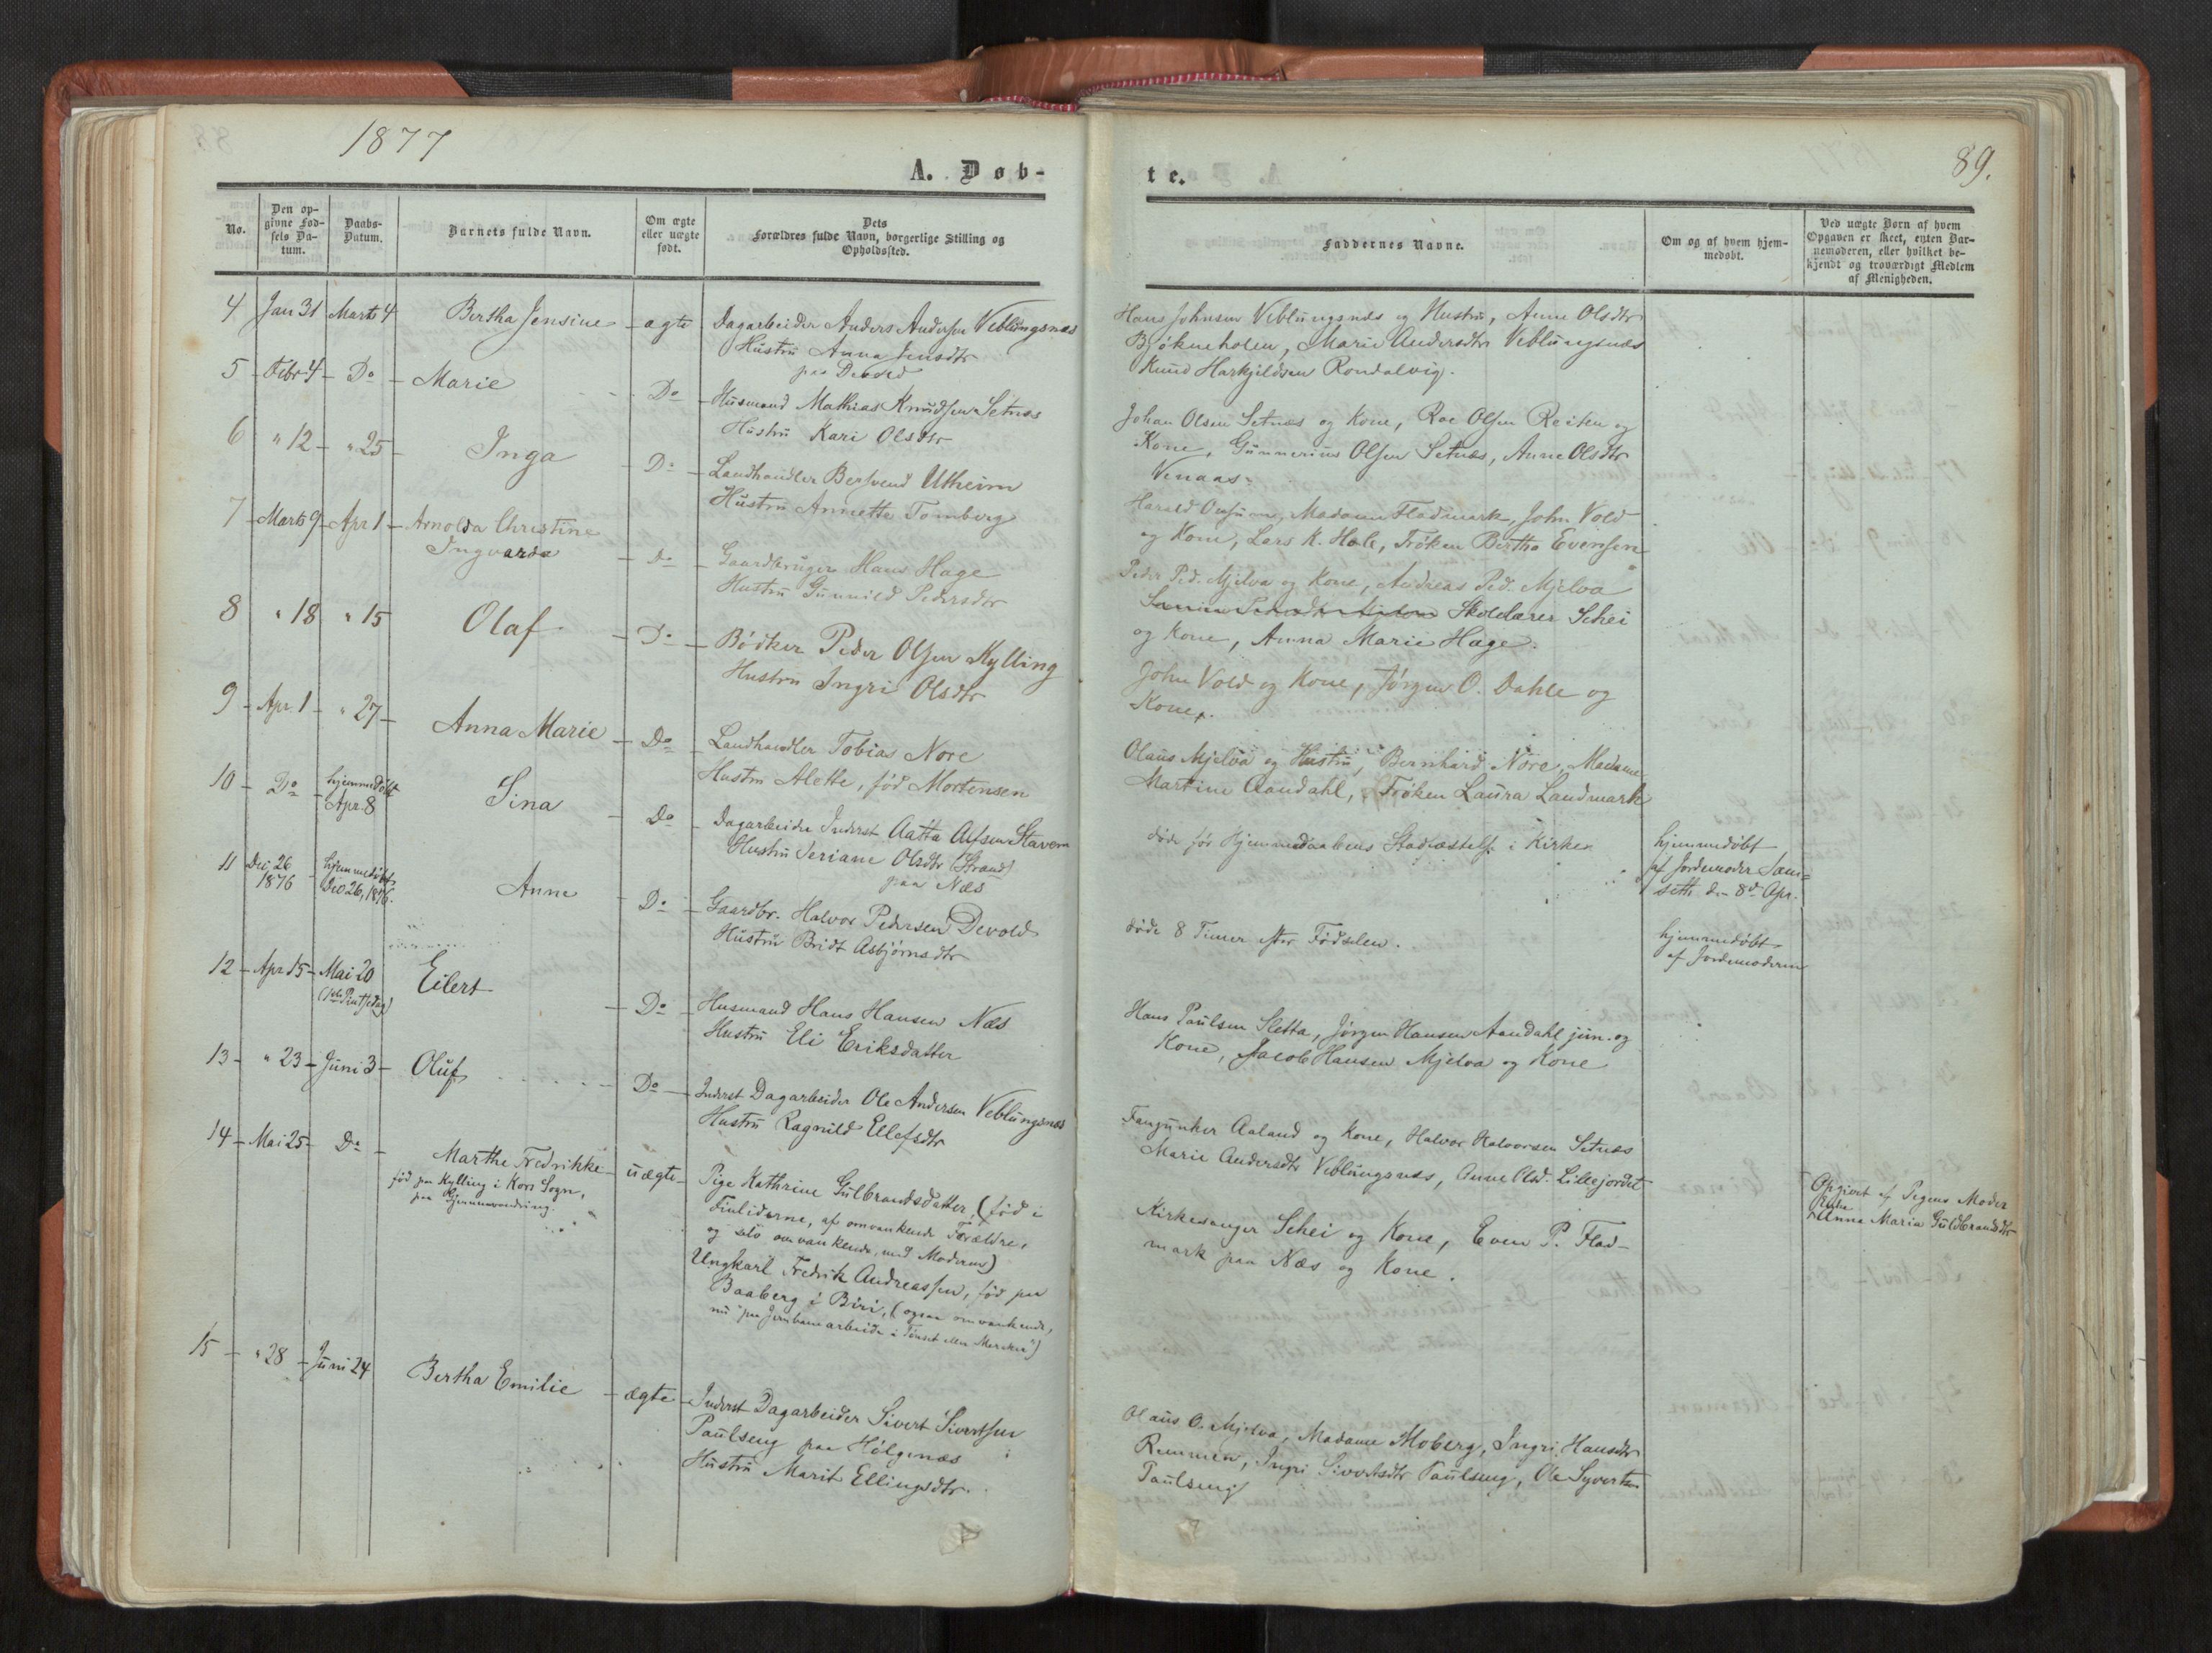 1877
A. Døb-
No.
Den op-
givne Fød-
sels Da-
tum.
Daabs-
Datum.
Barnets fulde Navn.
Om ægte
eller uægte
født.
Dets
Forældres fulde Navn, borgerlige Stilling og
Opholdssted.
4 Jan 31 Marts 4 Bertha Jensine ægte Dagarbeider Anders Andersen Veblungsnæs
Hustru Anna Jensdtr
paa Devold
5 Febr 4 Do Marie Do Husmand Mathias Knudsen Setnæs
Hustru Kari Olsdtr
6 " 12 " 25 Inga Do Landhandler Bersvend Utheim
Hustru Annette Tomberg
7 Marts 9 Apr 1 Arnolda Christine
Ingvarda Do Gaardbruger Hans Hage
Hustru Gunnild Pedersdtr
8 " 18 " 15 Olaf Do Bødker Peder Olsen Kylling
Hustru Ingri Olsdtr
9 Apr. 1 " 27 Anna Marie Do Landhandler Tobias Nore
Hustru Alette, fød Mortensen
10 Do hjemmedøbt
Apr. 8 Sina Do Dagarbeider Inderst Aatta Alfsen Stavem
Hustru Seriane Olsdtr (Strand)
paa Næs
11 Dec. 26
1876 hjemmedøbt
Dec 26, 1876. Anne Do Gaardbr. Halvor Pedersen Devold
Hustru Bridt Asbjørnsdtr
12 Apr 15 Mai 20
(1ste Pintsedag) Eilert Do Husmand Hans Hansen Næs
Hustru Eli Eriksdatter
13 " 23 Juni 3 Oluf Do Inderst Dagarbeider Ole Andersen Veblungsnæs
Hustru Ragnild Ellefsdtr
14 Mai 25 Do Marthe Fredrikke
fød paa Kylling i Kors Sogn,
paa Gjennemvandring. uægte Pige Kathrine Gulbrandsdatter, (fød i
Finliderne, af omvankende Forældre,
og selv omvankende, med Moderen)
Ungkarl Fredrik Andreassen, fød paa
Baaberg i Biri, (ogsaa omvankende,
nu paa Jernbanearbeide i Tønset eller Meraker)
15 " 28 Juni 24 Bertha Emilie ægte Inderst Dagarbeider Sivert Sivertsen
Paulseng paa Hølgenæs
Hustru Marit Ellingsdtr.
te.
89.
Faddernes Navne.
Om og af hvem hjem-
medøbt.
Ved uægte Børn af hvem
Opgaven er skeet, enten Bar-
nemoderen, eller hvilket be-
kjendt og troværdigt Medlem
af Menigheden.
Hans Johnsen Veblungsnæs og Hustru, Anne Olsdtr
Bjøkneholen, Marie Andersdtr Veblungsnæs
Knud Harkjeldsen Romdalvig.
Johan Olsen Setnæs og Kone, Roe Olsen Reiten og
Kone, Gunnerius Olsen Setnæs, Anne Olsdtr
Venaas.
Harald Onsum, Madame Fladmark, John Vold
og Kone, Lars K. Hole, Frøken Bertha Evensen
Peder Ped. Mjelva og Kone, Andreas Ped. Mjelva
Skolelærer Schei
og Kone, Anna Marie Hage.
John Vold og Kone, Jørgen O. Dahle og
Kone.
Olaus Mjelva og Hustru, Bernhard Nore, Madame
Martine Aandahl, Frøken Laura Landmark
døde før Hjemmedaabens Stadfæstelse i Kirken
hjemmedøbt
af Jordemoder Sæm-
seth den 8de Apr.
døde 8 Timer efter Fødselen.
hjemmedøbt
af Jordemoderen
Hans Paulsen Sletta, Jørgen Hansen Aandahl jun. og
Kone, Jacob Hansen Mjelva og Kone
Fanejunker Aaland og Kone, Halvor Halvorsen Setnæs
Marie Andersdtr Veblungsnæs, Anne Olsd. Lillejordet
Kirkesanger Schei og Kone, Even P. Flad-
mark paa Næs og Kone.
Opgivet af Pigens Moder
Enke
Anna Maria Guldbrandsdtr
Olaus O. Mjelva, Madame Moberg, Ingri Hansdtr
Remmen, Ingri Sivertsdtr Paulseng, Ole Syvertsen
Paulseng